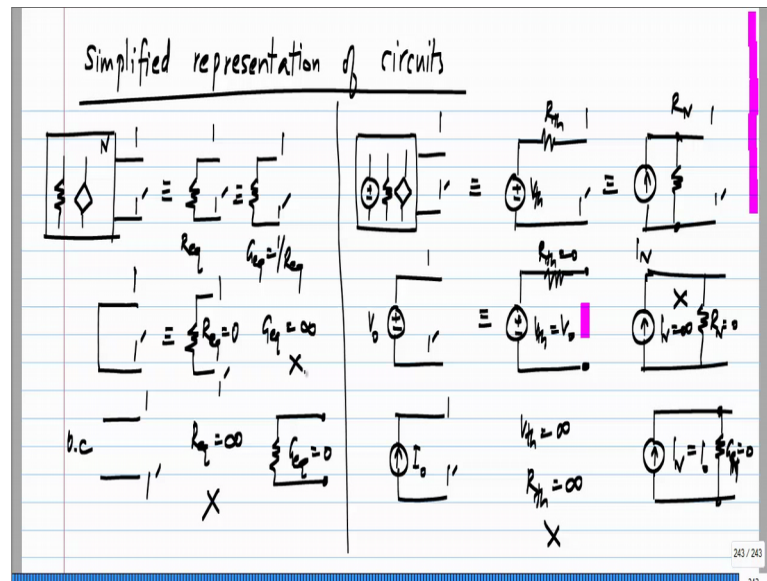 Simplified representation of circuits
N 1 1' ≡ 1 1' ≡ 1 1'
Req Geq=1/Req
1 1' ≡ Req=0 1 1' Geq=∞
X
o.c 1 1' Req=∞ Geq=0
X
1 1' ≡ Rth Vth 1 1' ≡ RN 1 1'
IN
V0 1 1' ≡ Rth=0 Vth=V0 IN=∞ X RN=0
I0 1 1' Vth=∞
Rth=∞
X
IN=I0
243 / 243